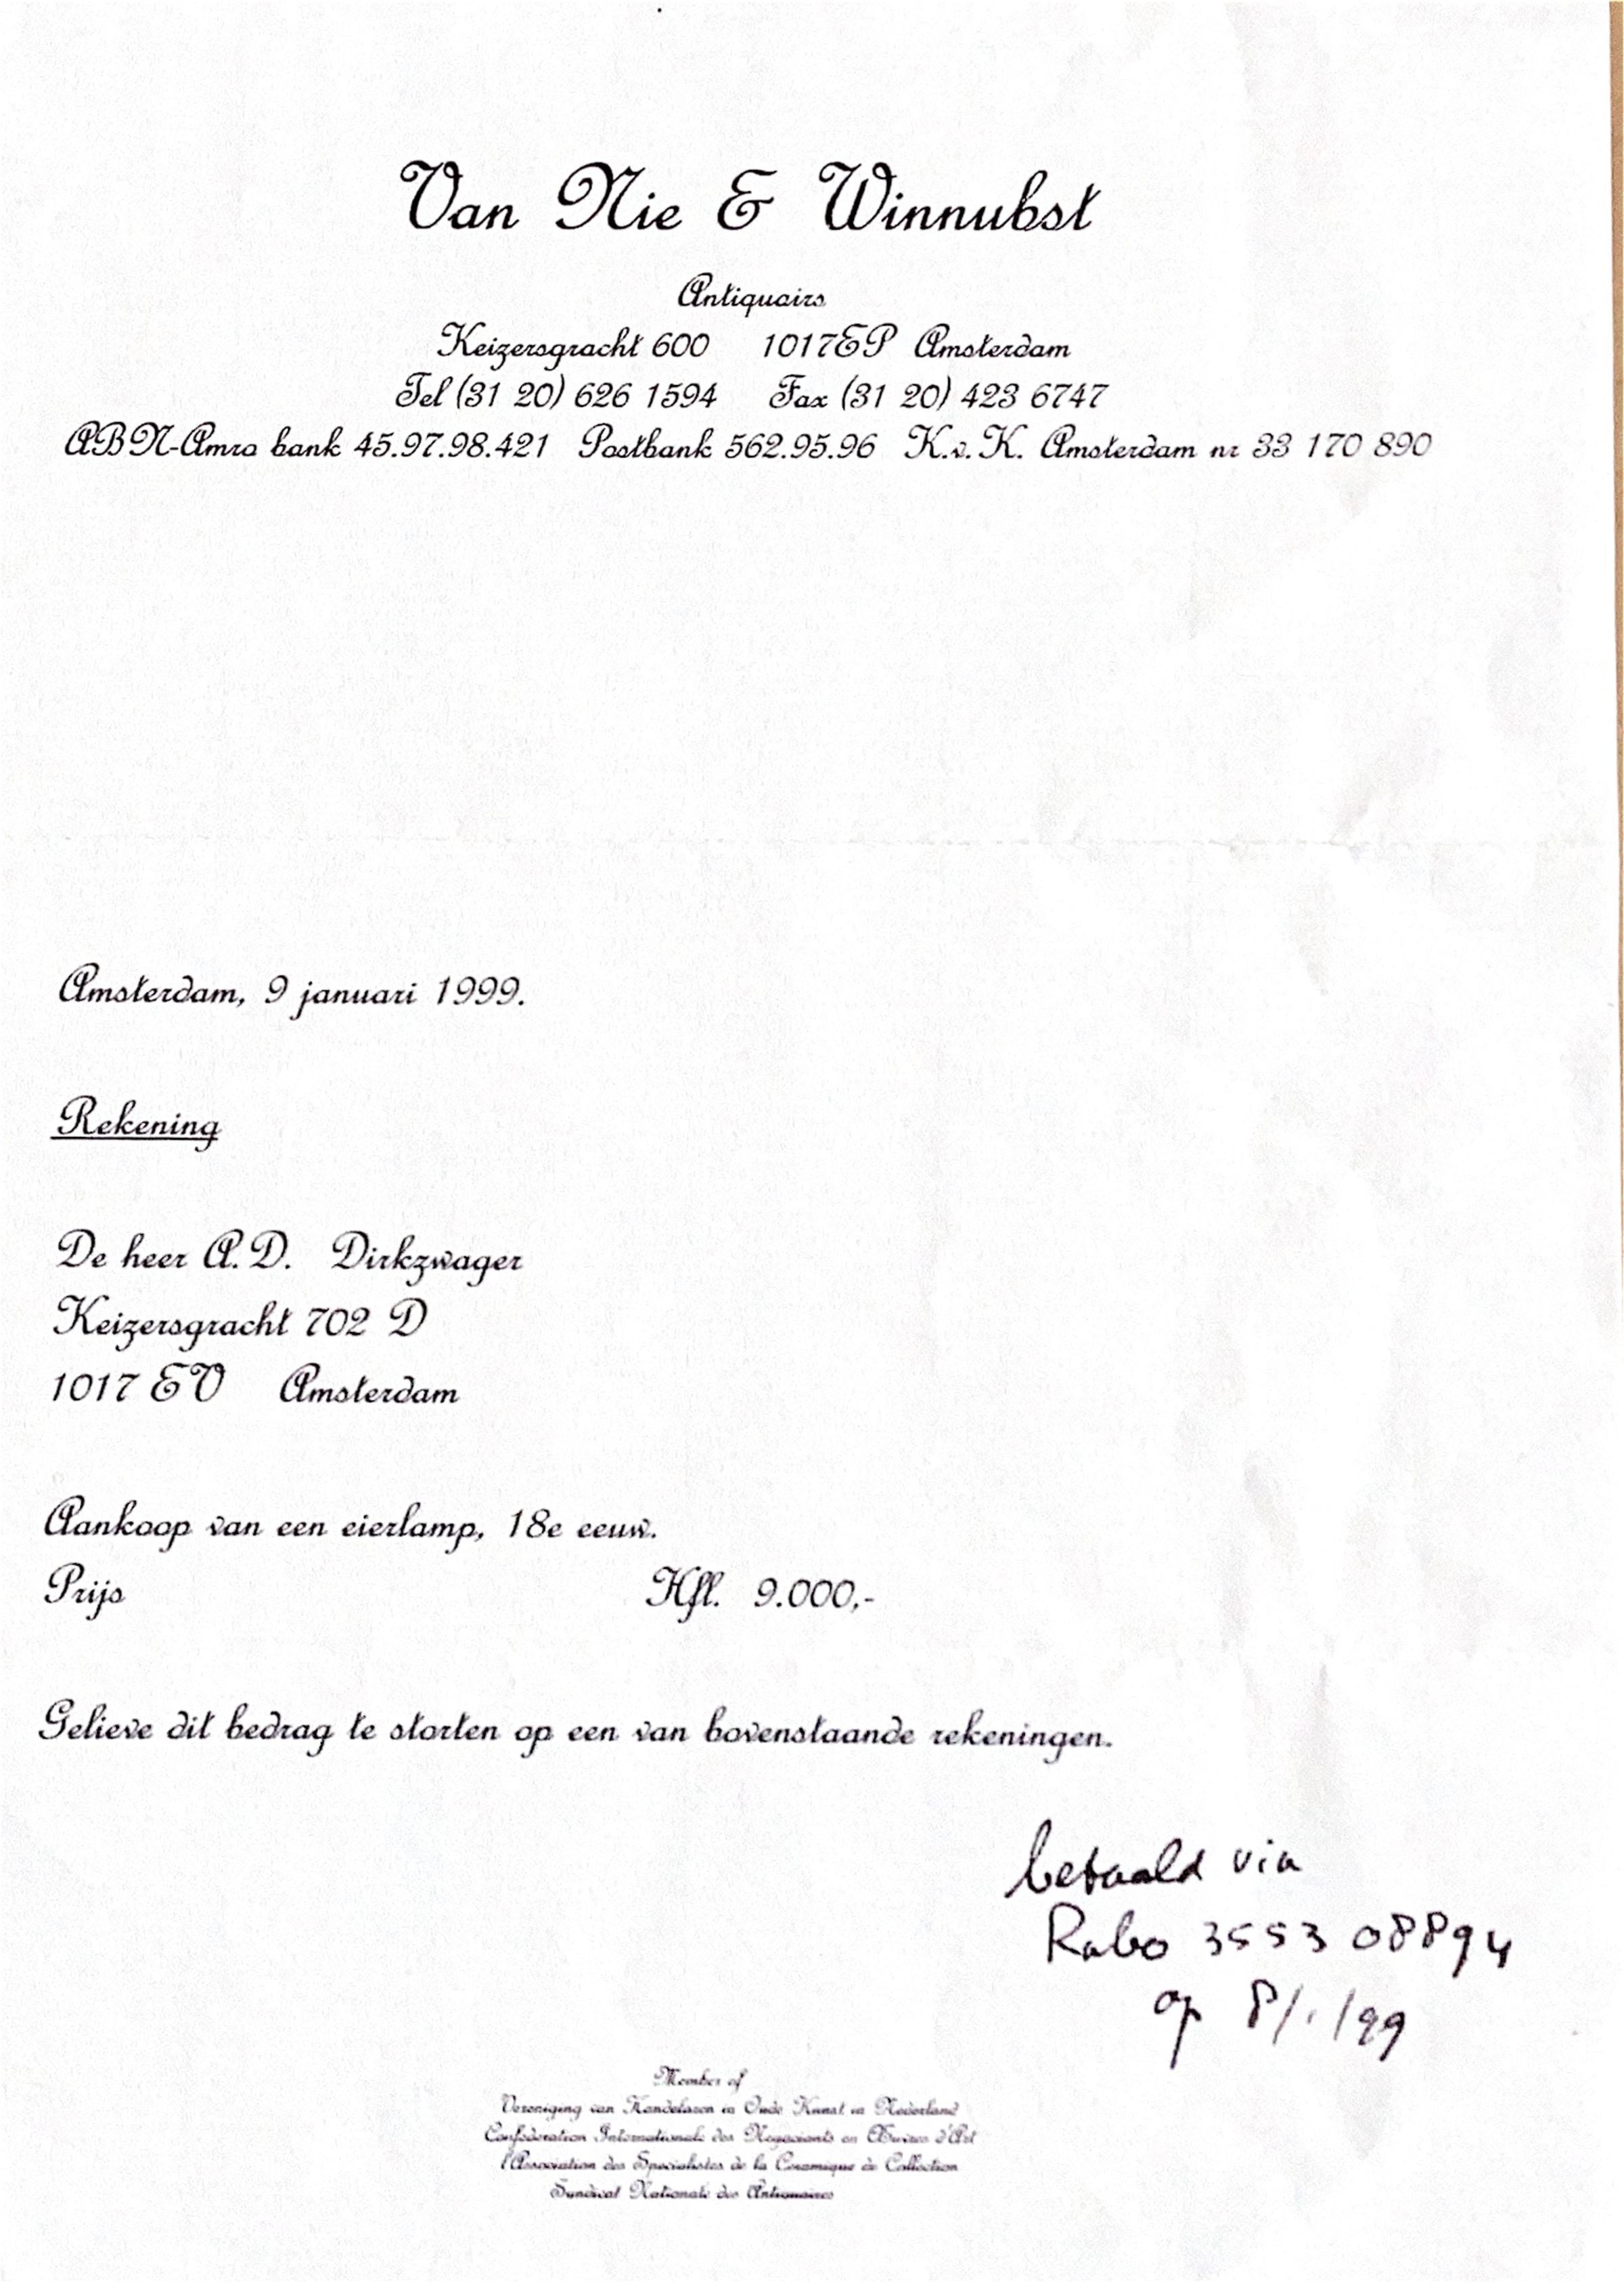 Van Nie & Winnubst
Antiquairs
Keizersgracht 600 1017EP Amsterdam
Tel (31 20) 626 1594 Fax (31 20) 423 6747
ABN-Amro bank 45.97.98.421 Postbank 562.95.96 K.v.K. Amsterdam nr 33 170 890
Amsterdam, 9 januari 1999.
Rekening
De heer A.D. Dirkzwager
Keizersgracht 702 D
1017 EV Amsterdam
Aankoop van een eierlamp, 18e eeuw.
Prijs Hfl. 9.000,-
Gelieve dit bedrag te storten op een van bovenstaande rekeningen.
betaald via
Rabo 3553 08894
op 8/1/99
Member of
Vereniging van Handelaren in Oude Kunst in Nederland
Confederation Internationale des Negociants en Œuvres d'Art
l'Association des Specialistes de la Ceramique de Collection
Syndicat Nationale des Antiquaires